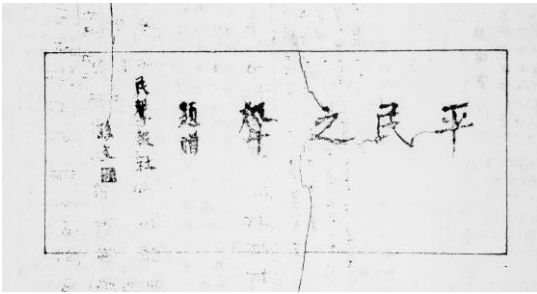 平民之聲
題贈
民聲報社
孫文